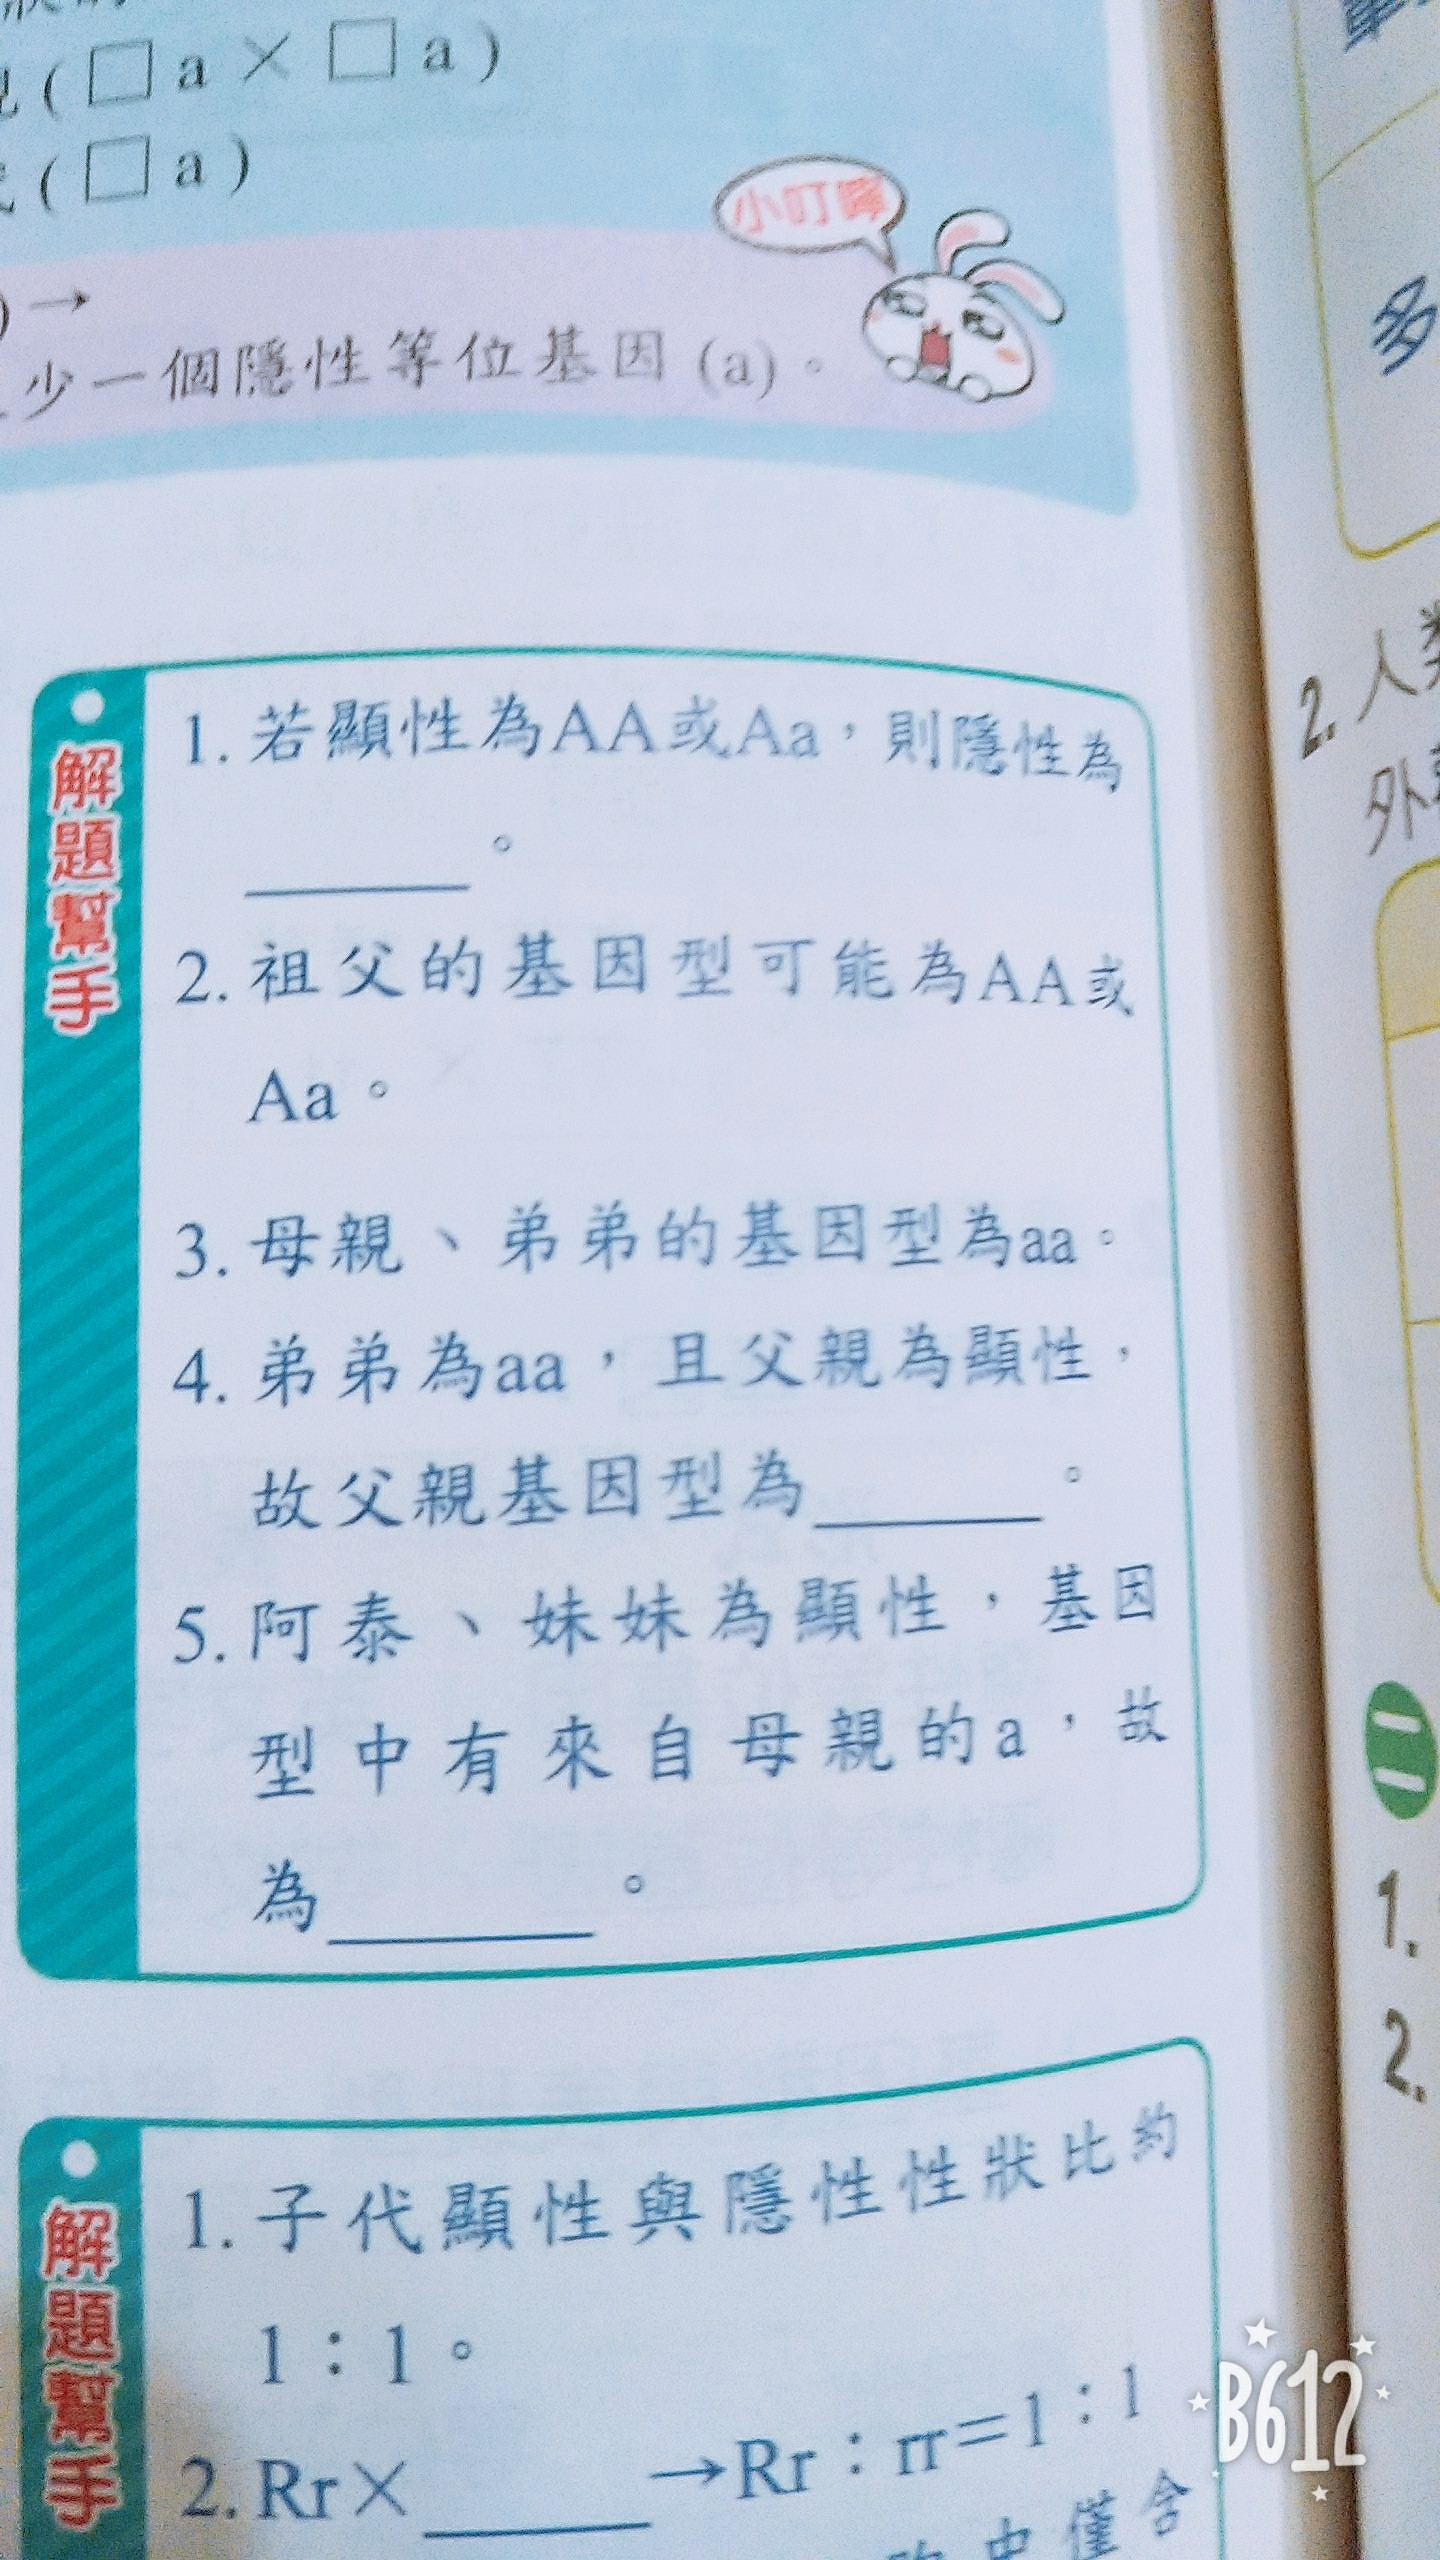 (□a×□a)
(□a)
小叮嚀
→
少一個隱性等位基因(a)。
解題幫手
1. 若顯性為AA或Aa，則隱性為
______。
2. 祖父的基因型可能為AA或
Aa。
3. 母親、弟弟的基因型為aa。
4. 弟弟為aa，且父親為顯性，
故父親基因型為______。
5. 阿泰、妹妹為顯性，基因
型中有來自母親的a，故
為______。
解題幫手
1. 子代顯性與隱性性狀比約
1：1。
2. Rr×______→Rr：rr＝1：1
中僅含
多
2. 人類
外
1.
2.
B612